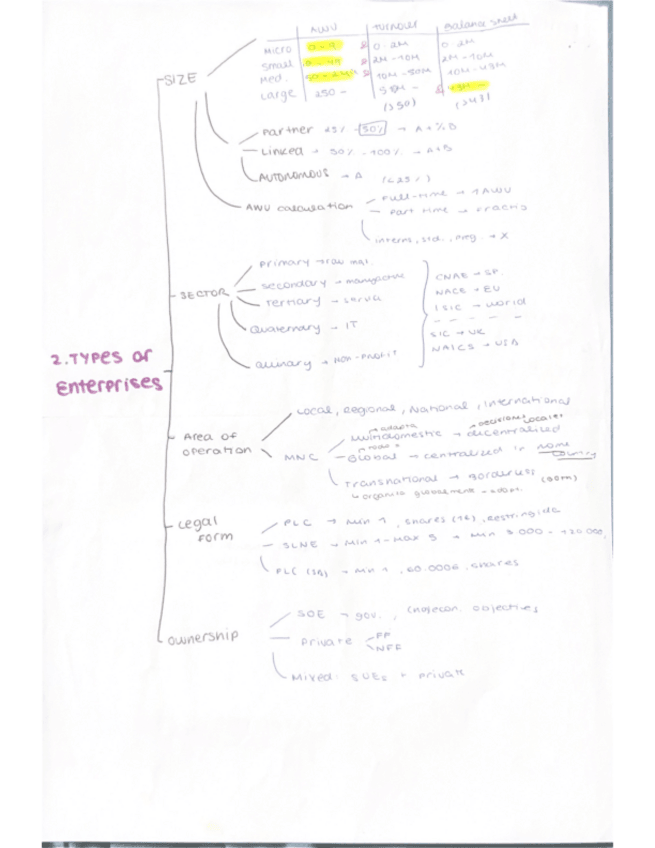 AWU | Turnover | Balance sheet
Micro 0 - 9 & 0 - 2M 0 - 2M
Small 0 - 49 & 2M - 10M 2M - 10M
Med. 50 - 249 & 10M - 50M 10M - 43M
Large 250 - 50M - & 43M -
(>50) (>43)
SIZE
Partner 25% - 50% → A + % B
Linked → 50% - 100% → A+B
AUTONOMOUS → A (<25%)
AWU calculation
Full-time → 1 AWU
Part time →
interns, std., → X
SECTOR
Primary → raw mat.
secondary →
Tertiary →
Quaternary → IT
Quinary → NON-PROFIT
CNAE → SP.
NACE → EU
ISIC → World
SIC → UK
NAICS → USA
2. TYPES OF
Enterprises
Area of
operation
Local, Regional, National, International
MNC
decisions locales
Multidomestic → decentralised
Global → centralised in home
country
Transnational → Borderless
Legal
Form
PLC → Min 1, shares (1€), restringida
SLNE → Min 1 - Max 5 → Min 3.000 - 120.000
PLC (SA) → Min 1, 60.000€, shares
ownership
SOE → gov., (no)econ. objectives
Private
FP
NFP
Mixed: SOEs + private